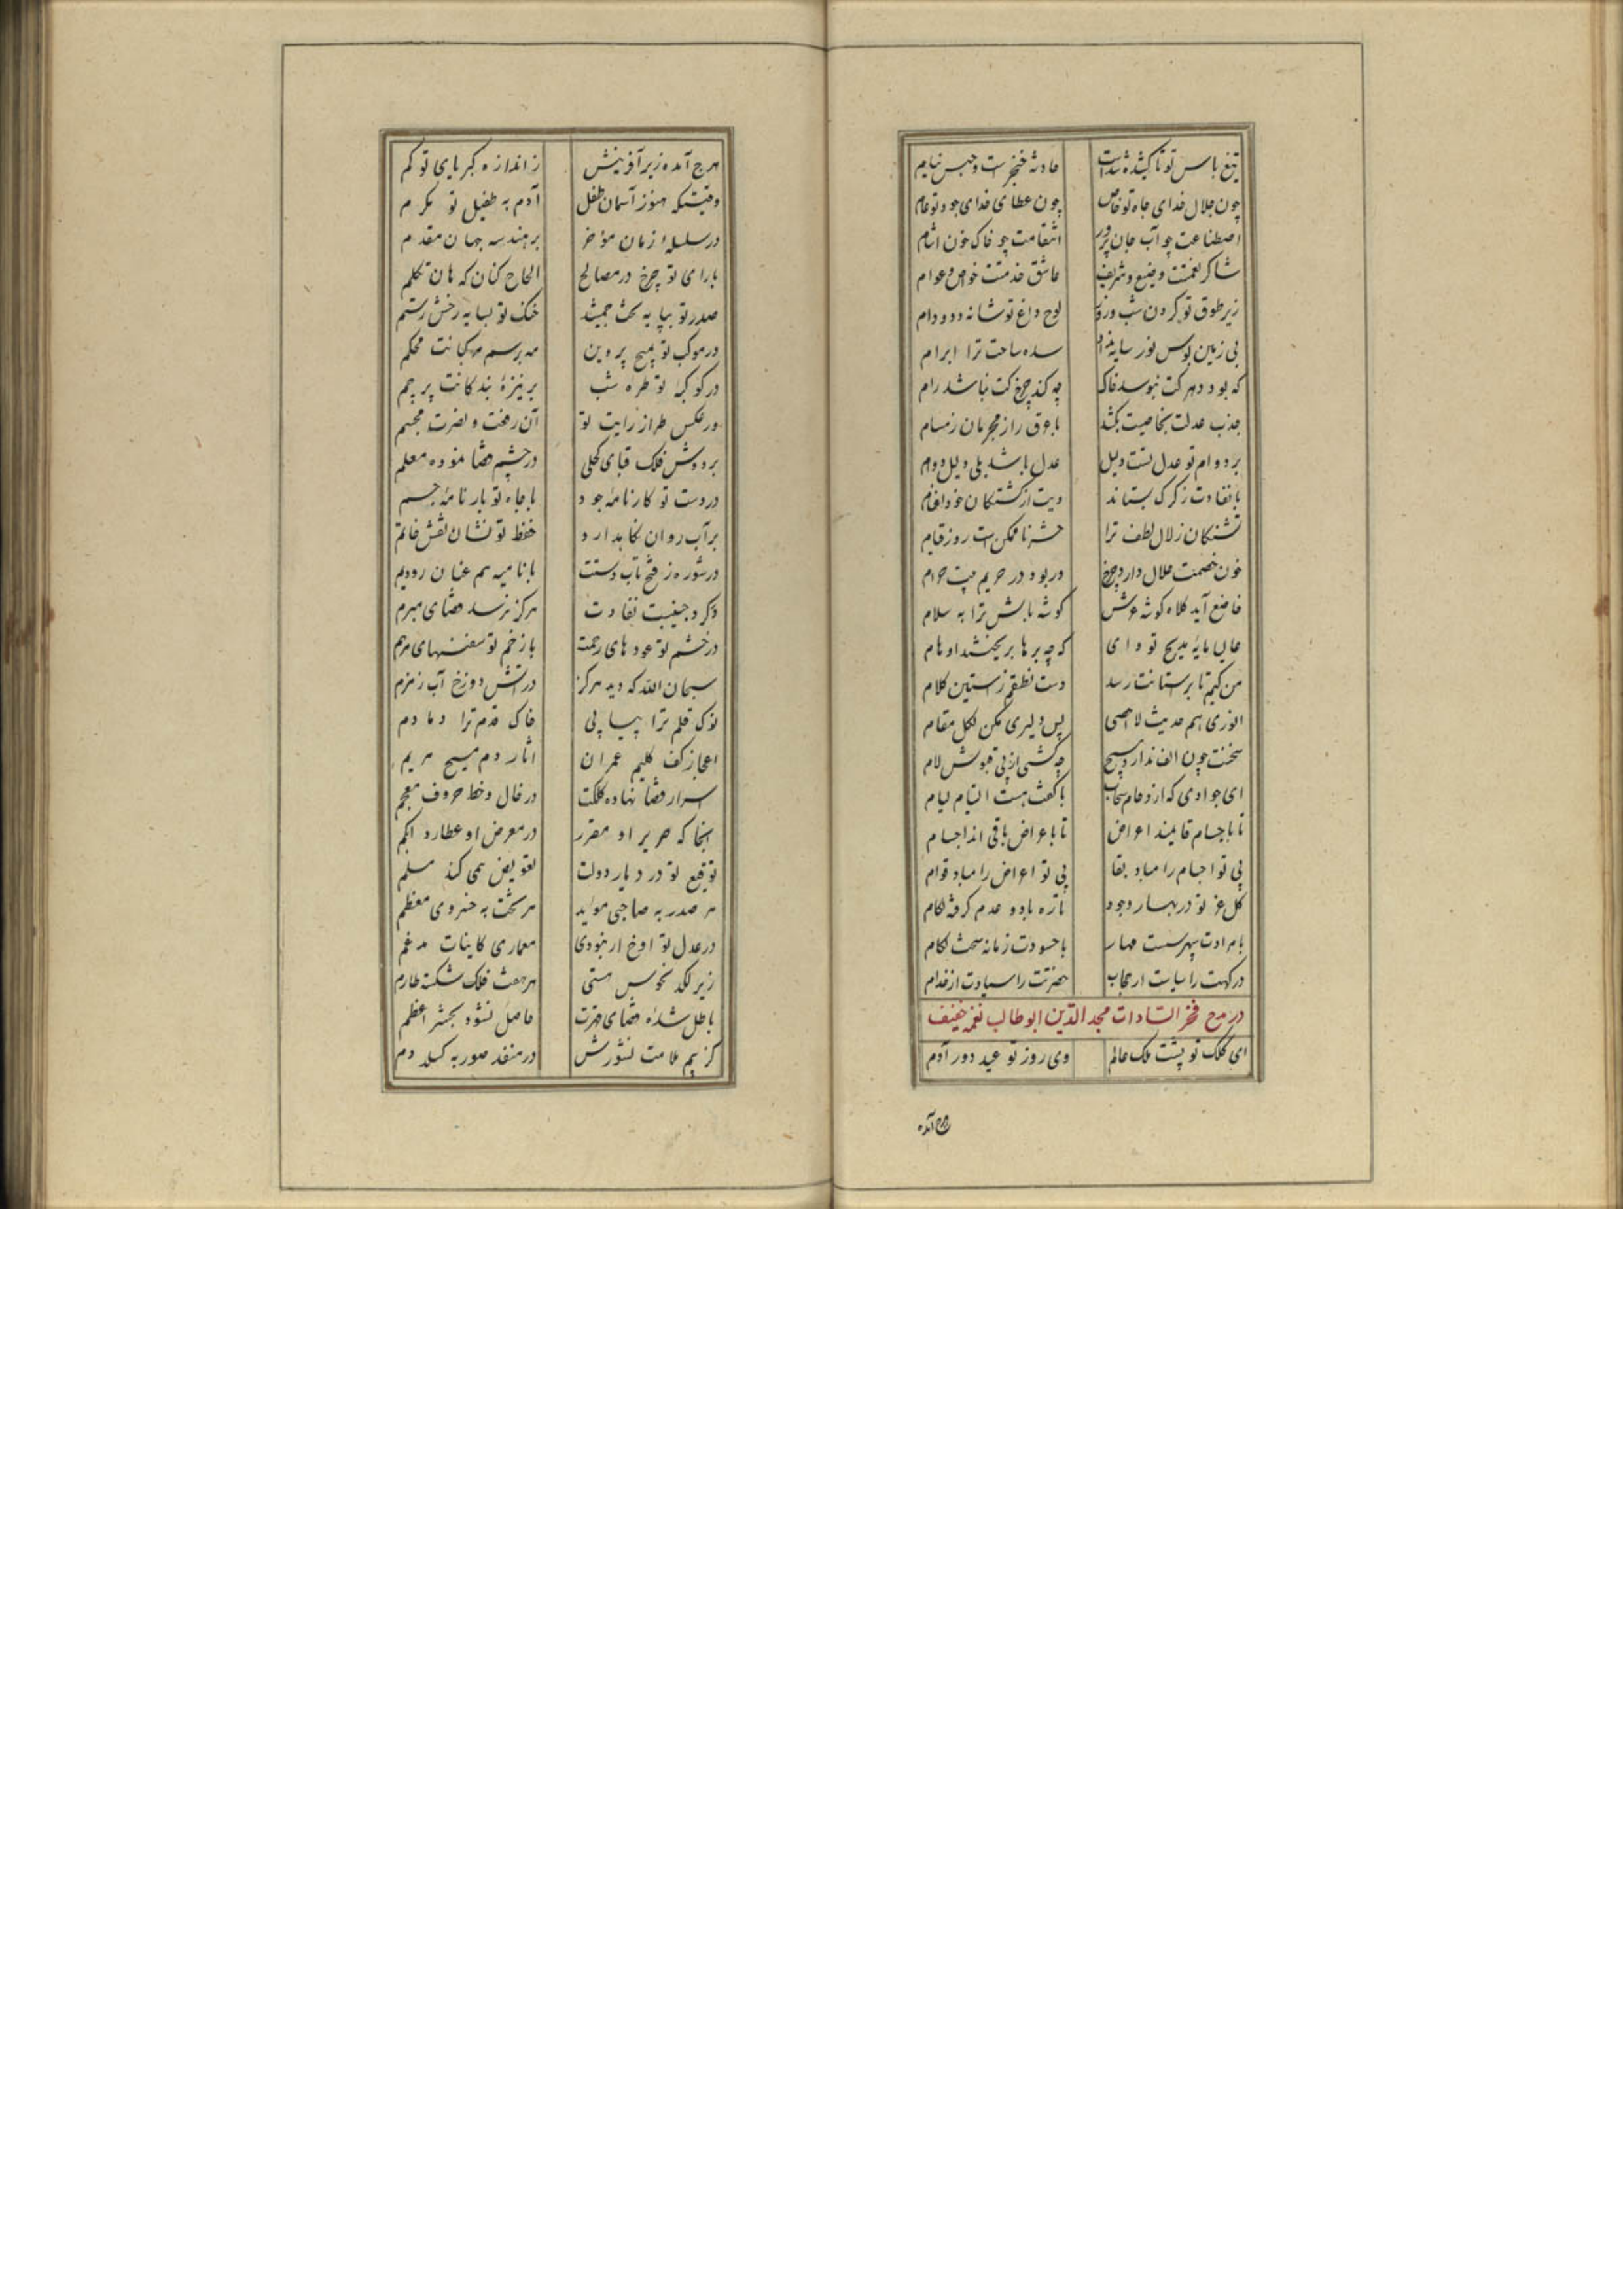 تیغ باس تو تا کشیده شدست حادثه خنجرست و حبس نیام
چون جلال خدای جاه تو خاص چون عطای خدای جود تو عام
اصطناعت چو آب جان پرور انتقامت چو خاک خون اشام
شاکر نعمتت وضیع و شریف عاشق خدمتت خواص و عوام
زیر طوق تو گردن شب و روز لوح داغ تو شانه دد و دام
بی زمین بوس نور سایه نداد سده ساحت ترا ابرام
که بود دهر کت نبوسد خاک چه کند چرخ کت نباشد رام
جذب عدلت بخاصیت بکشد با عرق راز مجرمان ز مسام
بر دوام تو عدل تست دلیل عدل باشد بلی دلیل دوام
با نفاذت ز گرگ بستاند دیت از کشتگان خود اغنام
تشنگان زلال لطف ترا حشر ناممکن است روز قیام
خون خصمت حلال دارد چرخ در بود در حریم بیت حرام
خاضع آید کلاه گوشه عرش گوشه بالش ترا به سلام
عالیا پایه مدیح تو وای که چه پرها بریختند اوهام
من کیم تا بر ستانت رسد دست نطقم ز استین کلام
انوری هم حدیث لا احصی پس دلیری مکن لکل مقام
سخنت چون الف ندارد هیچ چه کشی از پی قبولش لام
ای جوادی که از دحام سحاب با کفت هست التیام لیام
تا باجسام قایمند اعراض تا باعراض باقی اند اجسام
بی تو اجسام را مباد بقا بی تو اعراض را مباد قوام
گل عز تو در بهار وجود تازه باد و عدم گرفته لگام
با مرادت سپهر سست مهار با حسودت زمانه سخت لگام
درگهت را سیاست از حجاب حضرتت را سیادت از خدام
در مدح فخر السادات مجد الدین ابوطالب نعمه
ای کلک تو پشت ملک عالم وی روز تو عید دور آدم
هرچ آمده
هرچ آمده زیر آفرینش ز اندازه کبریای تو کم
وقتیکه هنوز آسمان طفل آدم به طفیل تو مکرم
در سلسله زمان مؤخر بر هندسه جهان مقدم
با رای تو چرخ در مصالح الحاح کنان که هان تکلم
صدر تو بپایه تخت جمشید خنگ تو بسایه رخش رستم
در موکب تو بمیخ پروین مه بر سم مرکبانت محکم
در کوکبه تو طره شب بر نیزه بندگانت پرچم
در عکس طراز رایت تو آن رفعت و نصرت مجسم
بر دوش فلک قبای کحلی در چشم قضا نموده معلم
در دست تو کارنامه جود با جاه تو بارنامه جسم
بر آب روان نگاهدارد حفظ تو نشان نقش خاتم
در شوره ز فتح تاب دستت با نامیه هم عنان رود یم
در گرد جنیبت نفاذت هرگز نرسد قضای مبرم
در خشم تو عودهای رحمت با زخم تو سفنهای مرهم
سبحان الله که دید هرگز در آتش دوزخ آب زمزم
نوک قلم ترا پیاپی خاک قدم ترا دمادم
اعجاز کف کلیم عمران اثار دم مسیح مریم
اسرار قضا نهاده کلکت در خال و خط حروف معجم
انجا که صریر او مقرر در معرض او عطارد ابکم
توقیع تو در دیار دولت تفویض همی کند مسلم
هر صدر به صاحبی موید هر تخت به خسروی معظم
در عدل تو اوخ ار نبودی معماری کاینات مدغم
زیر لگد نحوس هستی هر هفت فلک شکسته طارم
باطل شده قضای قهرت حاصل نشود بحشر اعظم
کز بیم ملامت نشورش در منفذ صور به گسلد دم